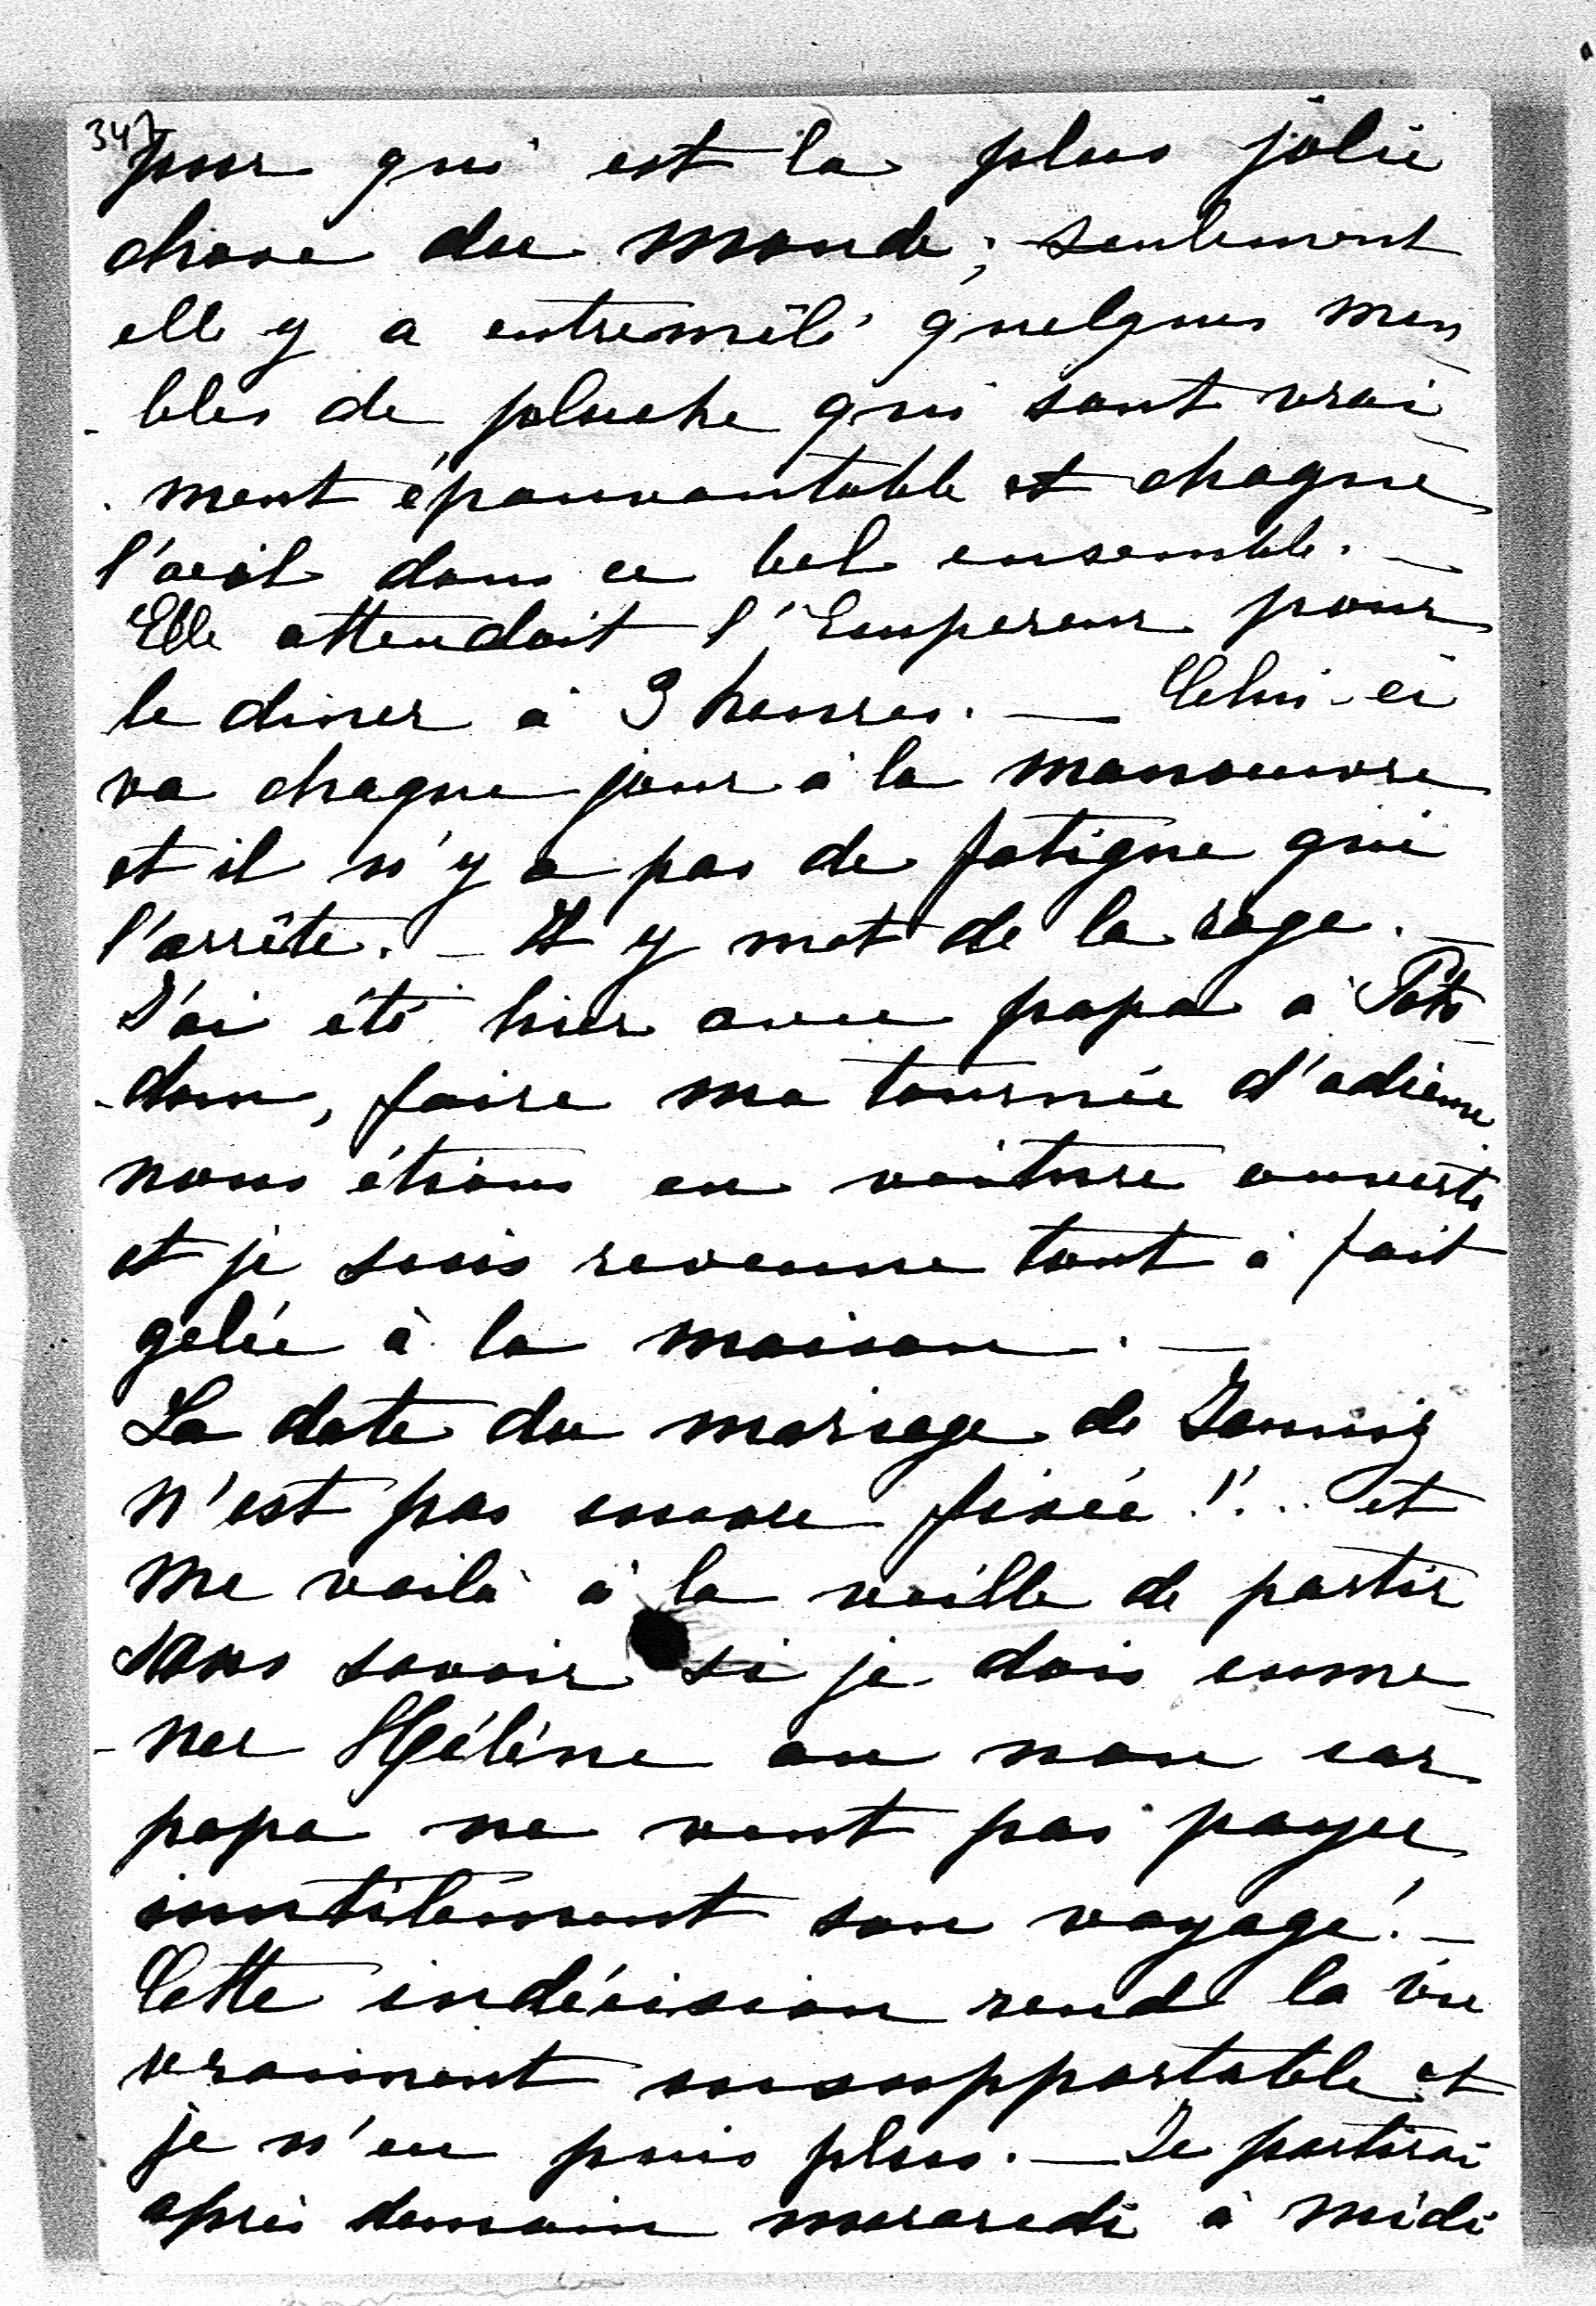 347
pour qui est la plus jolie
chose du monde; seulement
elle y a entremêlé quelques meu
-bles de peluche qui sont vrai
-ment épouvantable et choque
l'oeil dans ce bel ensemble. —
Elle attendait l'Empereur pour
le diner à 3 heures. — Celui-ci
va chaque jour à la manoeuvre
et il n'y a pas de fatigue qui
l'arrête. — Il y met de la rage. —
J'ai été hier avec papa à Pots
-dam, faire ma tournée d'adieux
nous étions en voiture ouverte
et je suis revenue tout à fait
gelée à la maison. —
La date du mariage de
n'est pas encore fixée!... et
me voilà à la veille de partir
sans savoir si je dois emme
-ner Hélène ou non car
papa ne veut pas payer
inutilement son voyage! —
Cette indécision rend la vie
vraiment insupportable et
je n'en puis plus. — Je partirai
après demain mercredi à midi